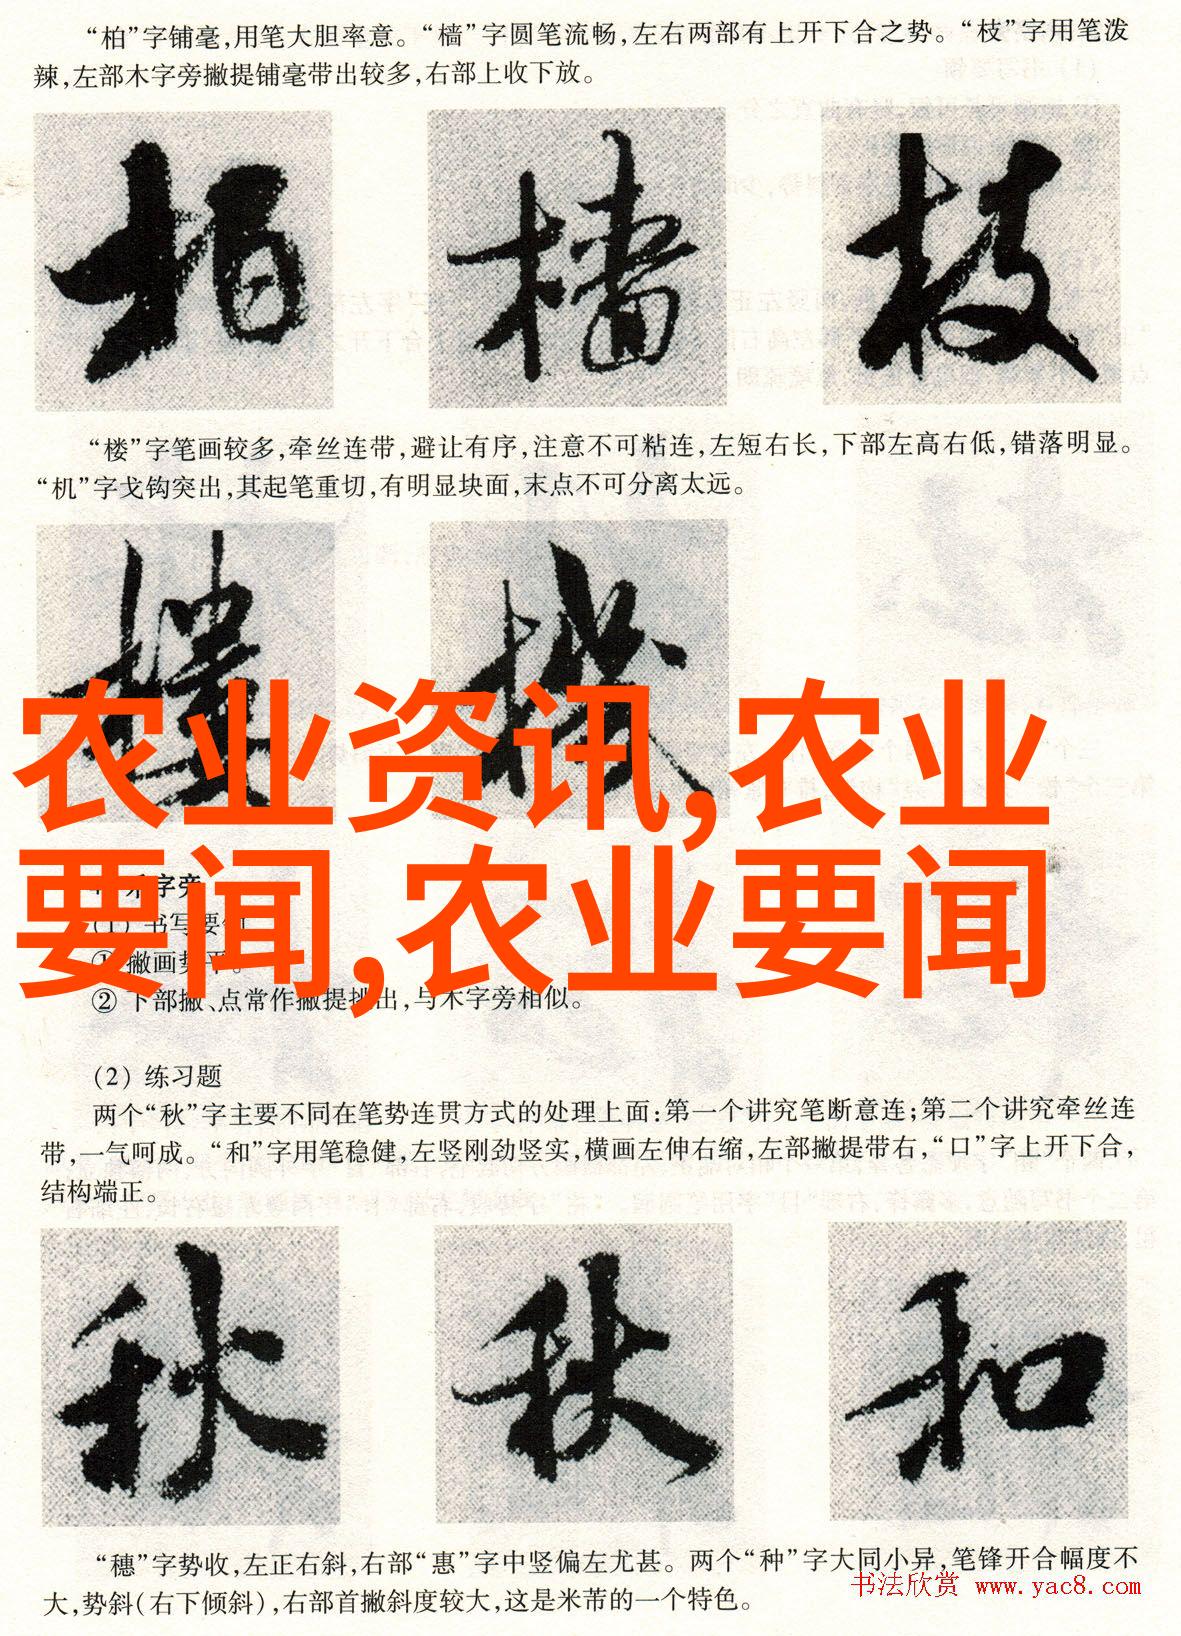 “柏”字铺毫,用笔大胆率意。“樯”字圆笔流畅,左右两部有上开下合之势。“枝”字用笔泼
辣,左部木字旁撇提铺毫带出较多,右部上收下放。
柏 樯 枝
“楼”字笔画较多,牵丝连带,避让有序,注意不可粘连,左短右长,下部左高右低,错落明显。
“机”字戈钩突出,其起笔重切,有明显块面,末点不可分离太远。
樓 機
农业资讯,农业
要闻,农业要闻
字旁
(1) 书写要领
① 撇画势平。
② 下部撇、点常作撇提挑出,与木字旁相似。
(2) 练习题
两个“秋”字主要不同在笔势连贯方式的处理上面:第一个讲究笔断意连;第二个讲究牵丝连
带,一气呵成。“和”字用笔稳健,左竖刚劲竖实,横画左伸右缩,左部撇提带右,“口”字上开下合,
结构端正。
秋 秋 和
“穗”字势收,左正右斜,右部“惠”字中竖偏左尤甚。两个“种”字大同小异,笔锋开合幅度不
大,势斜(右下倾斜),右部首撇斜度较大,这是米芾的一个特色。
书法欣赏 www.yac8.com